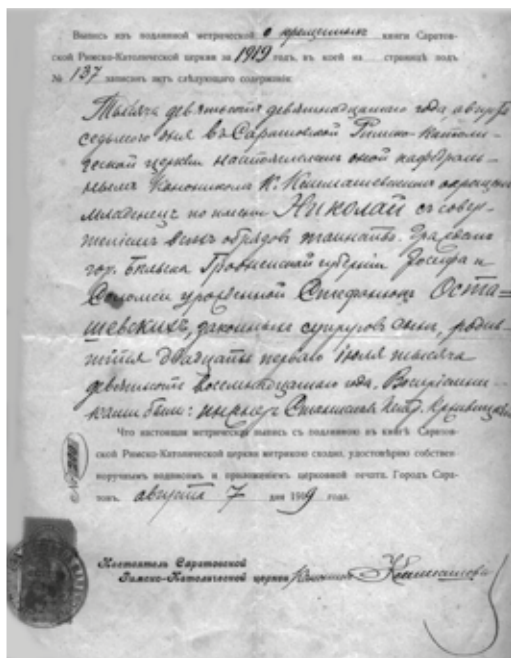 Выпись изъ подлинной метрической о крещенныхъ книги Саратов-
ской Римско-Католической церкви за 1919 годъ, въ коей на странице подъ
№ 137 записанъ актъ слѣдующаго содержанія:
Тысяча девятьсотъ девятнадцатаго года, августа
седьмого дня въ Саратовской Римско-Католи-
ческой церкви настоятелемъ оной кафедраль-
нымъ Каноникомъ К. окрещенъ
младенецъ по имени Николай съ совер-
шеніемъ всѣхъ обрядовъ таинства. Гражданъ
гор. Гродненской губерніи Іосифа и
Саломеи урожденной Оста-
шевскихъ, законныхъ супруговъ сынъ, родив-
шійся двадцать перваго Іюля тысяча
девятьсотъ восемнадцатаго года. Воспріемни-
ками были: Станиславъ
Что настоящая метрическая выпись съ подлинною въ книгѣ Саратов-
ской Римско-Католической церкви метрикою сходна, удостовѣряю собствен-
норучнымъ подписомъ и приложеніемъ церковной печати. Городъ Сара-
товъ, августа 7 дня 1919 года.
Настоятель Саратовской
Римско-Католической церкви Каноникъ